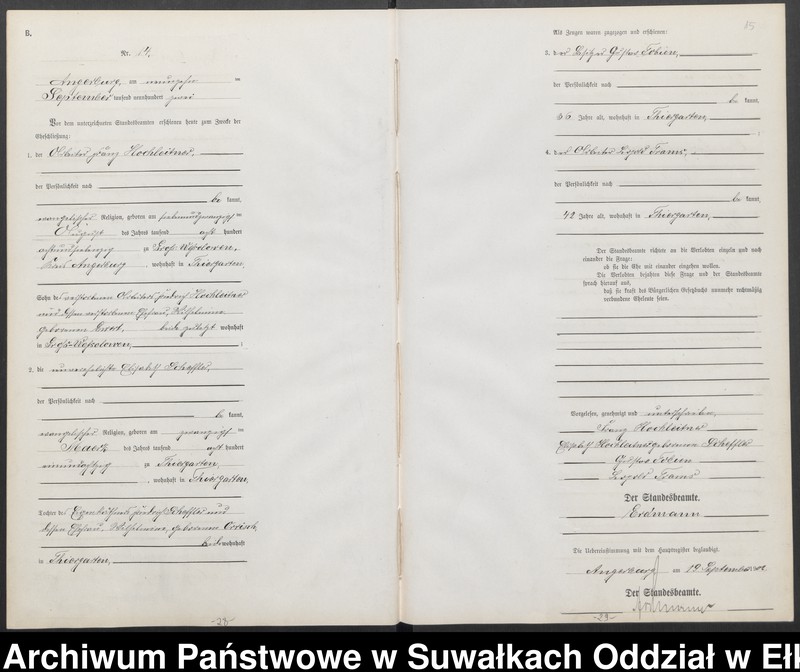 B.
Nr. 14.
Angerburg, am neunzehn ten
September tausend neunhundert zwei
Vor dem unterzeichneten Standesbeamten erschienen heute zum Zwecke der
Eheschließung:
1. der Arbeiter Franz Hochleitner,
der Persönlichkeit nach
be kannt,
evangelischer Religion, geboren am siebenundzwanzigsten
August des Jahres tausend acht hundert
achtundsiebenzig zu Groß-Wessolowen,
Kreis Angerburg, wohnhaft in Thiergarten,
Sohn des verstorbenen Arbeiters Friedrich Hochleitner
und dessen verstorbenen Ehefrau, Wilhelmine
geborenen beide zuletzt wohnhaft
in Groß-Wessolowen, ;
2. die unverehelichte Elisabeth Scheffler,
der Persönlichkeit nach
be kannt,
evangelischer Religion, geboren am zwanzigsten
Maerz des Jahres tausend acht hundert
zu Thiergarten,
, wohnhaft in Thiergarten,
Tochter des Eigenkäthners Friedrich Scheffler und
dessen Ehefrau, Wilhelmine, geborenen
beide wohnhaft
in Thiergarten,
-28-
15
Als Zeugen waren zugezogen und erschienen:
3. der Besitzer Gustav Tobien,
der Persönlichkeit nach
be kannt,
36 Jahre alt, wohnhaft in Thiergarten,
;
4. der Arbeiter Leopold Frams,
der Persönlichkeit nach
be kannt,
42 Jahre alt, wohnhaft in Thiergarten,
Der Standesbeamte richtete an die Verlobten einzeln und nach
einander die Frage:
ob sie die Ehe mit einander eingehen wollen.
Die Verlobten bejahten diese Frage und der Standesbeamte
sprach hierauf aus,
daß sie kraft des Bürgerlichen Gesetzbuchs nunmehr rechtmäßig
verbundene Eheleute seien.
Vorgelesen, genehmigt und unterschrieben,
Franz Hochleitner
Elisabeth Hochleitner geborene Scheffler
Gustav Tobien
Leopold Frams
Der Standesbeamte.
Erdmann
Die Uebereinstimmung mit dem Hauptregister beglaubigt.
Angerburg am 19 September 1902
Der Standesbeamte.
Erdmann
-29-
Archiwum Państwowe w Suwałkach Oddział w Eł